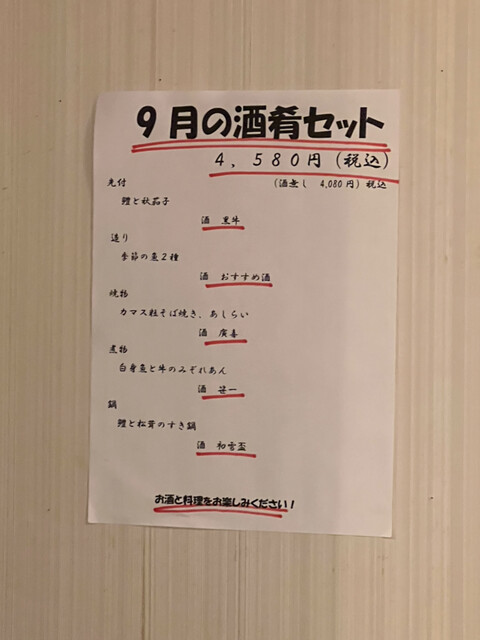 9月の酒肴セット
4,580円(税込)
(酒無し 4,080円)税込
先付
鱧と秋茄子
酒 黒牛
造り
季節の魚2種
酒 おすすめ酒
焼物
カマス粒そば焼き、あしらい
酒 廣喜
煮物
白身魚と牛のみぞれあん
酒 笹一
鍋
鱧と松茸のすき鍋
酒 初雪盃
お酒と料理をお楽しみください!